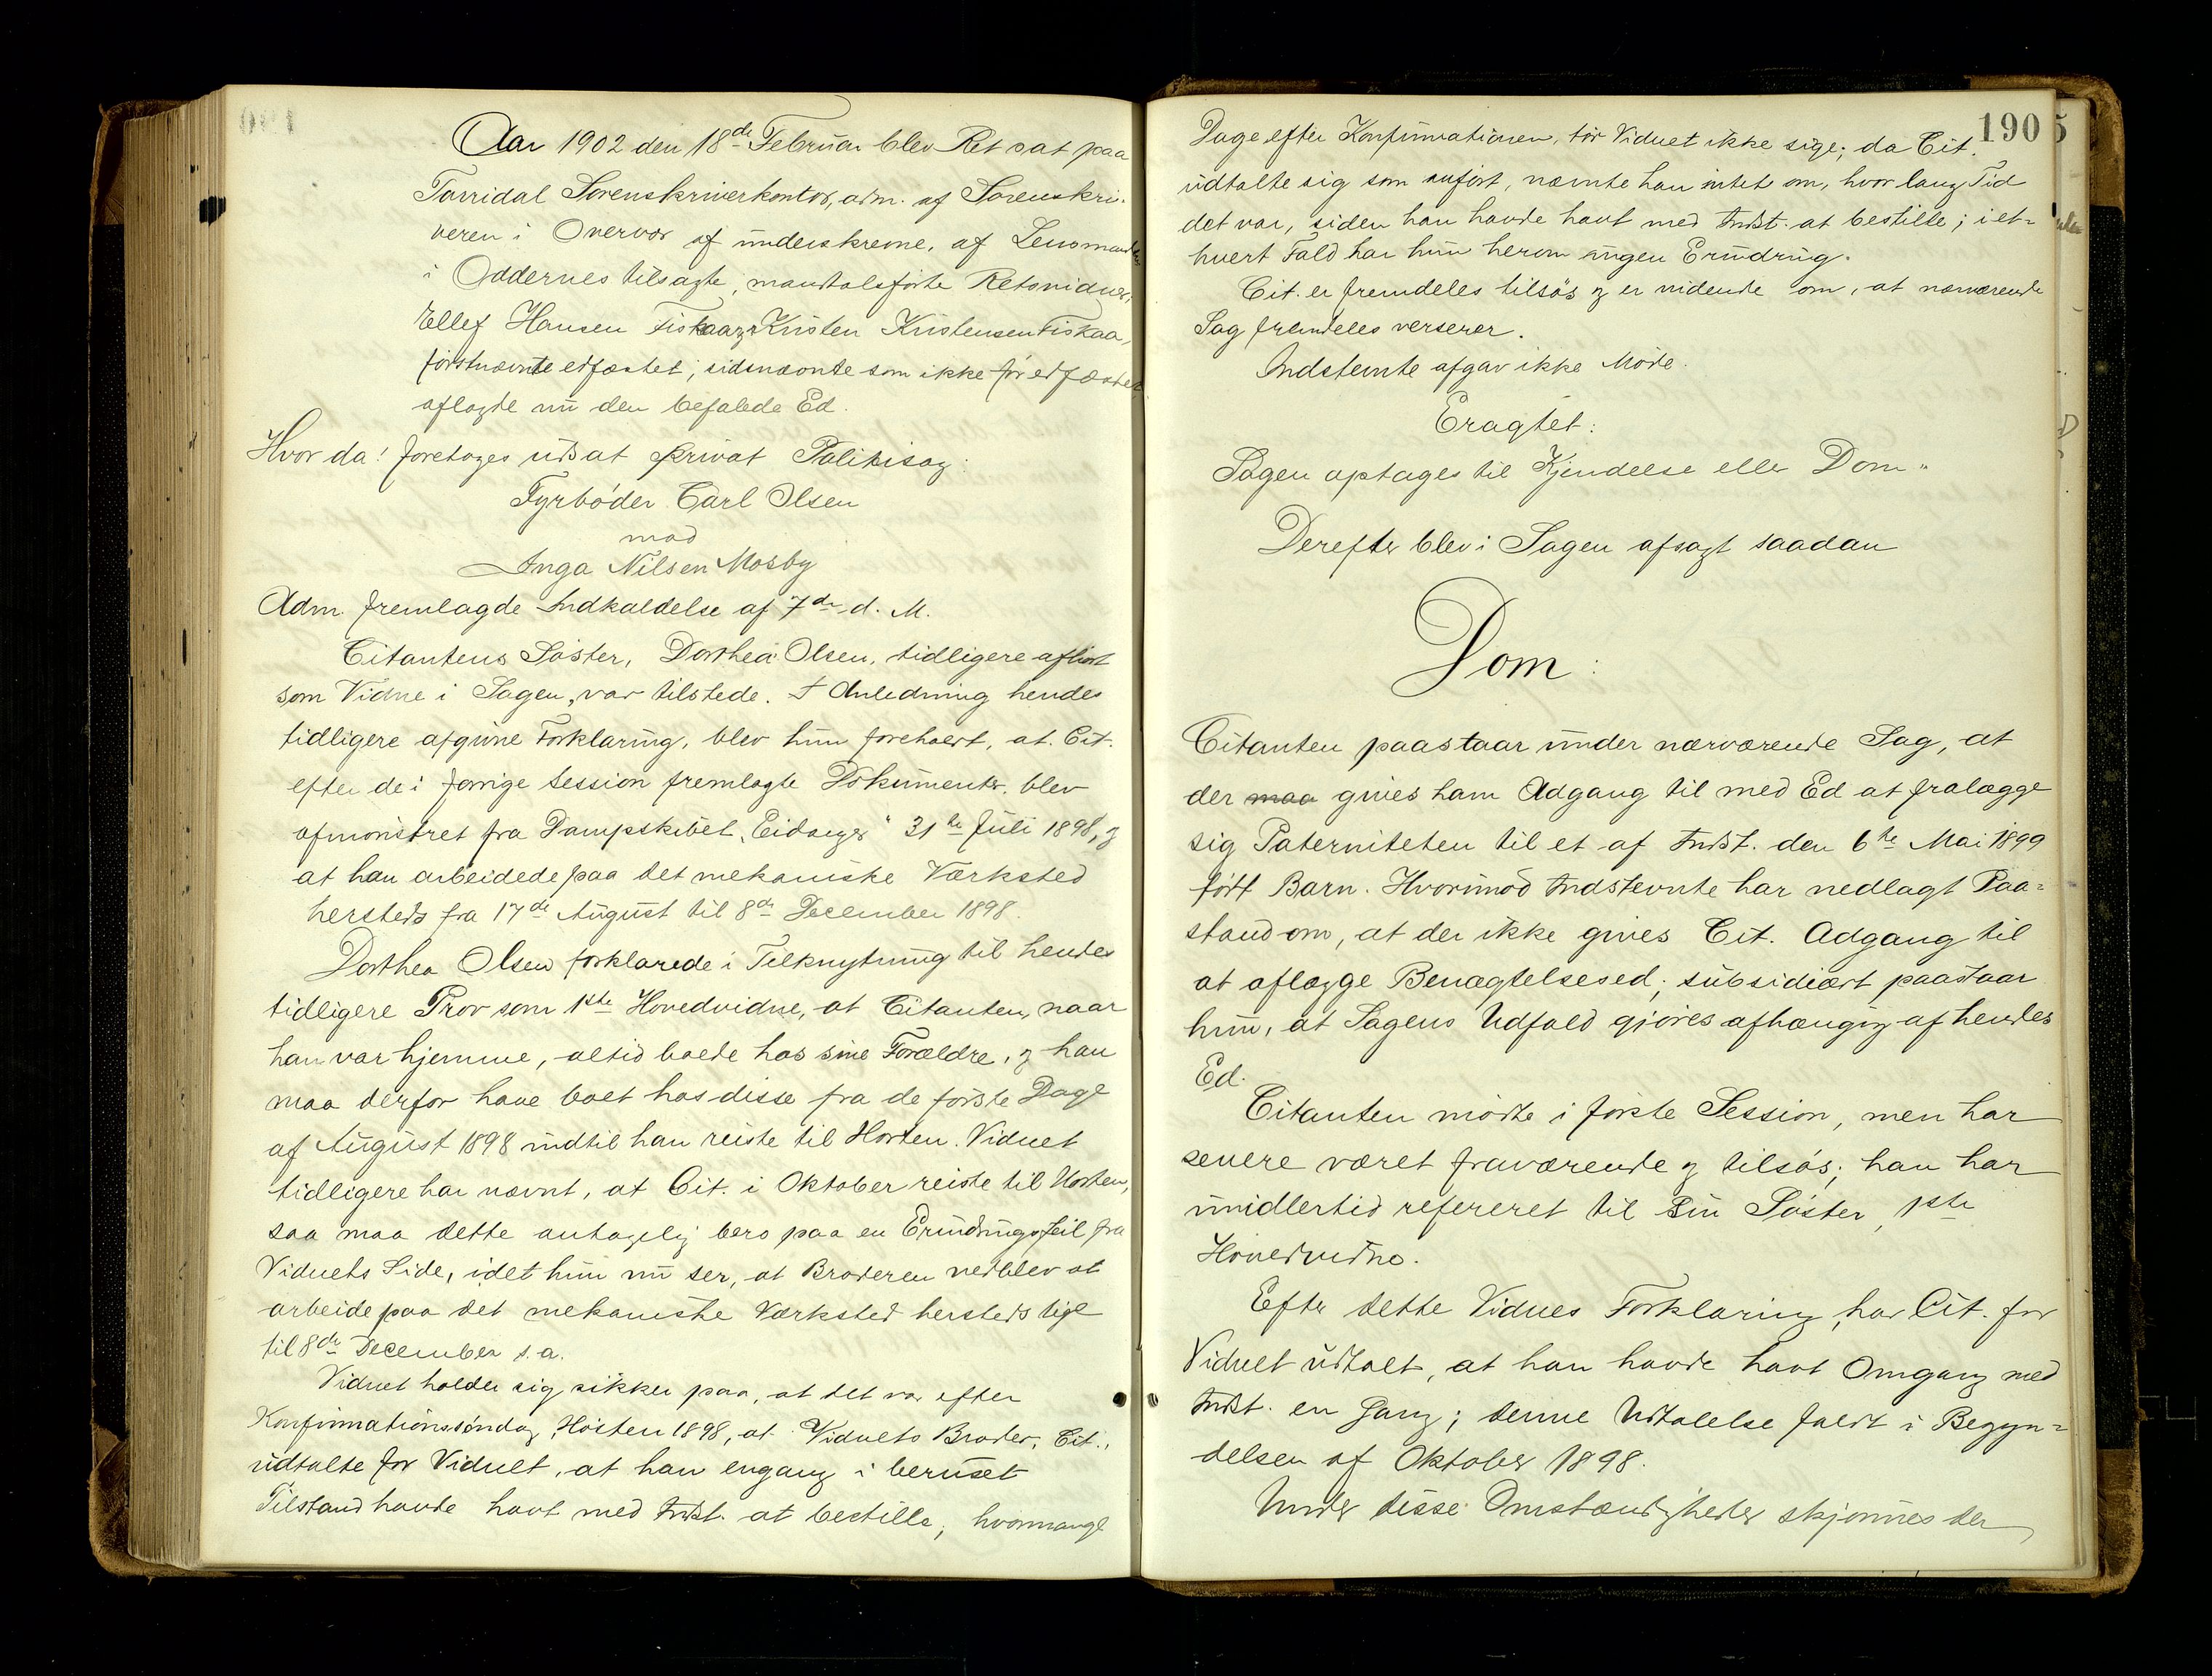 Aar 1902 den 18de Februar blev Ret sat paa
Torridal Sorenskriverkontor, adm. af Sorenskri-
veren i Overvær af underskrevne, af Lensmanden
i Oddernes tilsagte, mandtalsførte Retsvidner,
Ellef Hansen Fiskaa og Kristen Kristensen Fiskaa,
førstnævnte edfæstet, sidsnævnte som ikke før edfæstet
aflagde nu den befalede Ed.
Hvorda! foretoges udsat privat Politisag:
Fyrbøder Carl Olsen
mod
Inga Nilsen Mosby
Adm. fremlagde Indkaldelse af 7de d. M.
Citantens Søster, Dorthea Olsen, tidligere afhørt
som Vidne i Sagen, var tilstede. I Anledning hendes
tidligere afgivne Forklaring, blev hun foreholdt, at Cit.
efter de i forrige Session fremlagte Dokumenter, blev
afmønstret fra Dampskibet "Eidanger" 31te Juli 1898, og
at han arbeidede paa det mekaniske Værksted
hersteds fra 17de August til 8de December 1898.
Dorthea Olsen forklarede i Tilknytning til hendes
tidligere Prov som 1ste Hovedvidne, at Citanten, naar
han var hjemme, altid boede hos sine Forældre, og han
maa derfor have boet hos disse fra de første Dage
af August 1898 indtil han reiste til Horten. Vidnet
tidligere har nævnt, at Cit. i Oktober reiste til Horten,
saa maa dette antagelig bero paa en Erindringsfeil fra
Vidnets Side, idet hun nu ser, at Broderen vedblev at
arbeide paa det mekaniske Værksted hersteds lige
til 8de December s.a.
Vidnet holder sig sikker paa, at det var efter
Konfirmationssøndag, Høsten 1898, at Vidnets Broder, Cit.,
udtalte for Vidnet, at han engang i beruset
Tilstand havde havt med Indst. at bestille; hvormange
190
Dage efter Konfirmationen, tør Vidnet ikke sige; da Cit.
udtalte sig som anført, nævnte han intet om, hvor lang Tid
det var, siden han havde havt med Indst. at bestille; i et-
hvert Fald har hun herom ingen Erindring.
Cit. er fremdeles tilsøs og er vidende om, at nærværende
Sag fremdeles verserer.
Indstevnte afgav ikke Møde.
Eragtet:
Sagen optages til Kjendelse eller Dom.
Derefter blev i Sagen afsagt saadan
Dom:
Citanten paastaar under nærværende Sag, at
der maa gives ham Adgang til med Ed at fralægge
sig Paterniteten til et af Indst. den 6te Mai 1899
født Barn. Hvorimod Indstevnte har nedlagt Paa-
stand om, at der ikke gives Cit. Adgang til
at aflægge Benægtelsesed; subsidiært paastaar
hun, at Sagens Udfald gjøres afhængig af hendes
Ed.
Citanten mødte i første Session, men har
senere været fraværende og tilsøs; han har
imidlertid refereret til sin Søster, 1ste
Hovedvidne.
Efter dette Vidnes Forklaring, har Cit. for
Vidnet udtalt, at han havde havt Omgang med
Indst. en Gang; denne Udtalelse faldt i Begyn-
delsen af Oktober 1898.
Under disse Omstændigheder skjønnes der